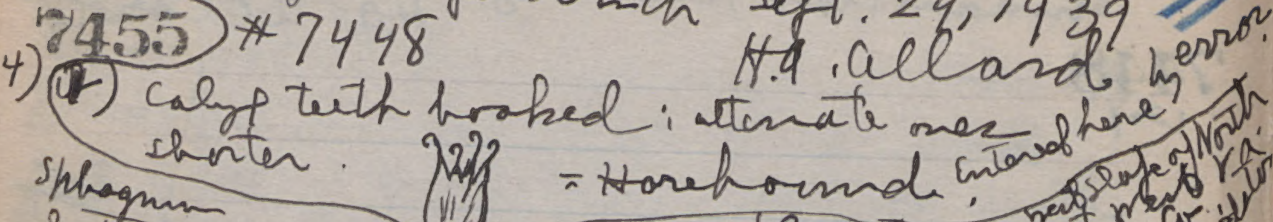 Sept. 29, 1939
7455 # 7448
H.A. Allard
4) Calyx teeth hooked; alternate ones
shorter.
= Horehound. Entered here by error.
Sphagnum
slope of North
Va.